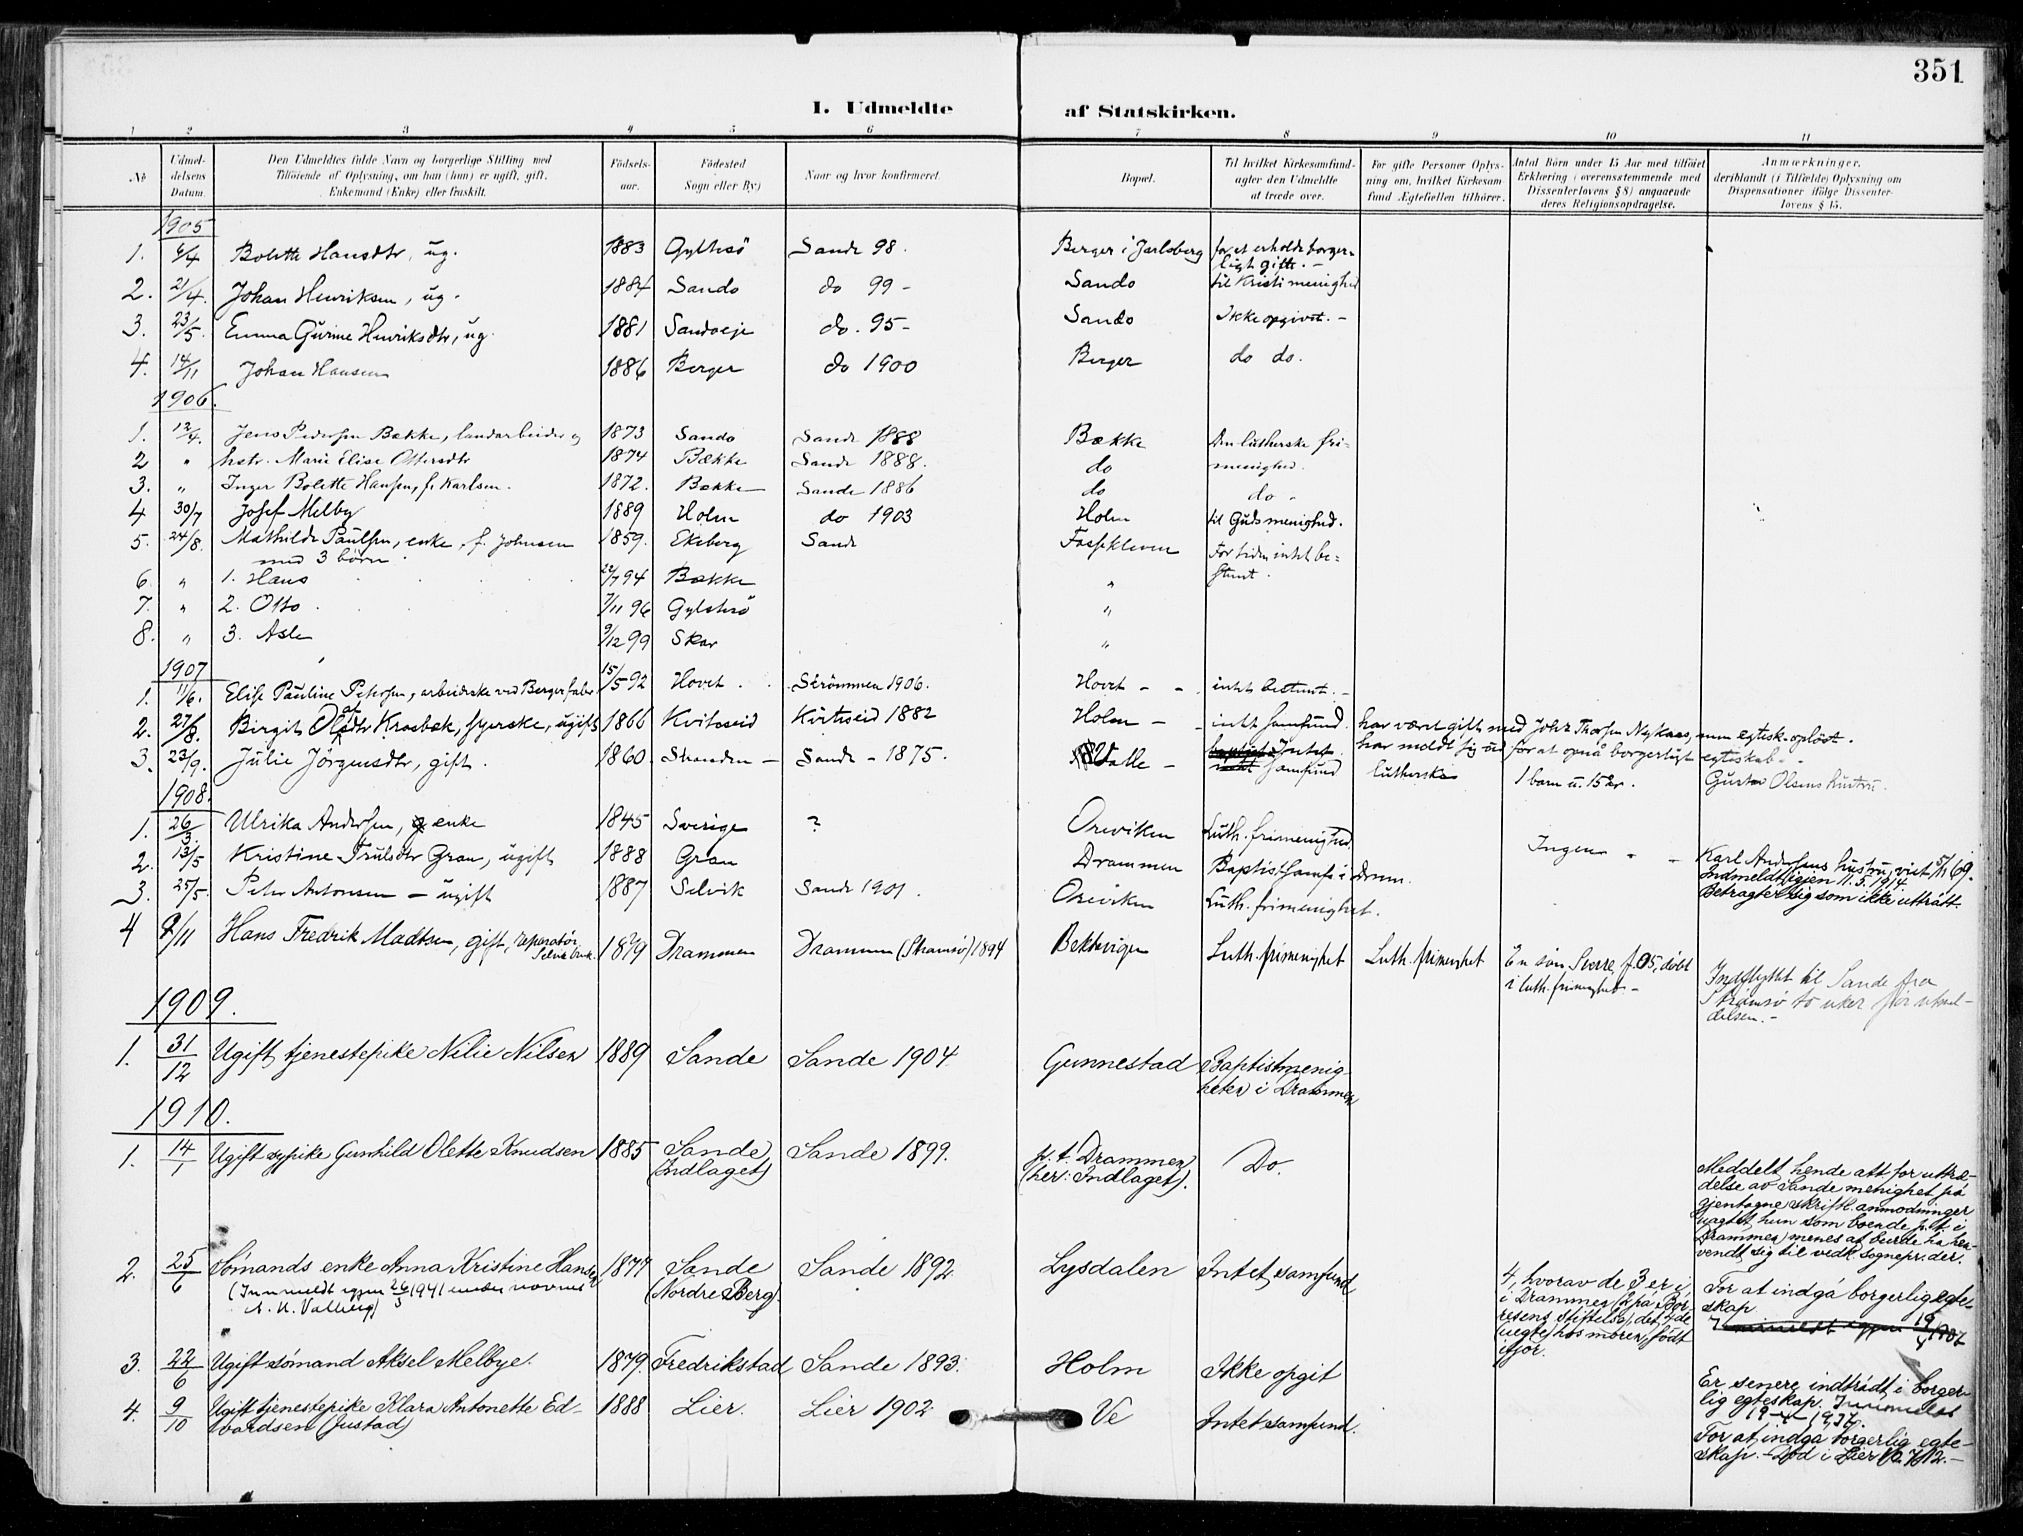 351
I. Udmeldte af Statskirken.
1 2 3 4 5 6 7 8 9 10 11
№
Udmeldelsens Datum.
Den Udmeldtes fulde Navn og borgerlige Stilling med
Tilföiende af Oplysning, om han (hun) er ugift, gift,
Enkemand (Enke) eller fraskilt.
Födselsaar.
Födested
Sogn eller By)
Naar og hvor konfirmeret
Bopæl.
Til hvilket Kirkesamfund
agter den Udmeldte
at træde over.
For gifte Personer Oplysning om, hvilket Kirkesamfund Ægtefællen tilhörer.
Antal Börn under 15 Aar med tilföiet
Erklæring (overensstemmende med
Dissenterlovens § 8) angaaende
deres Religionsopdragelse.
Anmærkninger,
deriblandt (i Tilfælde) Oplysning om
Dispensationer ifölge Dissenterlovens § 15.
1905
1. 6/4 Bolette Hansdtr, ug. 1883 Gyltesö Sande 98. Berger i Jarlsberg for at erholde borgerligt gifte. –
2. 21/4. Johan Henriksen, ug. 1884 Sando do 99 – Sando til Kristi menighed
3. 23/5. Emma Gurine Henriksdtr, ug. 1881 Sandoeje do. 95 – Sando Ikke opgivet. –
4. 14/11 Johan Hansen 1886 Berger do 1900 Berger do do.
1906.
1. 12/4. Jens Pedersen Bække, landarbeider og 1873 Sando Sande 1888 Bække Den lutherske fri-
2 " hstr. Marie Elise Ottersdtr 1874 Bække Sande 1888. do menighed.
3. " Inger Bolette Hansen, f. Karlsen. 1872. Bække Sande 1886 do do –
4 30/7 Josef Melby 1889 Holm do 1903 Holm til Guds menighed.
5. 24/8. Mathilde Paulsen, enke, f. Johnsen 1859. Ekeberg Sande Fossekleven For tiden intet be-
med 3 börn stemt.
6. " 1. Hans 22/7 94 Bække "
7. " 2. Otto 7/11 96 Gyltesö "
8. " 3. Asle 9/12 99 Skar "
1907
1. 11/6. Elise Pauline Petersen, arbeiderske ved Berger fabr. 15/5 92 Hovet Strömmen 1906. Hovet – – intet bestemt. –
2. 27/8. Birgit Olafsdtr Krosbæk, syerske, ugift 1866 Kvitseid Kvitseid 1882 Holm – – intet samfund. har været gift med Johz Thorsen Nykaas, men egtesk. oplöst.
har meldt sig ud for at opnå borgerligt egteskab. –
3. 23/9. Julie Jörgensdtr, gift. 1860. Stranden – Sande – 1875. Valle – Intet samfund lutherske 1 barn u. 15 år. Gustav Olsens hustru.
1908.
1. 26/3 Ulrika Andersen, enke 1845 Sverige ? Oreviken Luth. frimenighed Ingen – – Karl Andersens hustru, viet 5/11 69.
2. 13/5 Kristine Trulsdtr Gran, ugift 1888 Gran Drammen Baptistsamf. i dram. Indmeldt igjen 11.5.1914
3. 25/5. Peter Antonsen – ugift 1887 Selvik Sande 1901. Oreviken Luth. frimenighet. Betragter sig som ikke uttrått.
4 9/11 Hans Fredrik Madtsen, gift, reparatör Selvik bruk. 1879 Drammen Drammen (Strömsö) 1894 Bekkevigen Luth. frimenighet Luth. frimenighet En sön Sverre f. 05, döbt
i luth. frimenighet – Indflyttet til Sande fra
Strömsö to uker för utmel-
delsen. –
1909.
1. 31/12 Ugift tjenestepike Nilie Nilsen 1889 Sande Sande 1904. Gunnestad Baptistmenig-
heten i Drammen
1910.
1. 14/1 Ugift sypike Gunhild Olette Knudsen 1885 Sande (Indlaget) Sande 1899. p. t. Drammen (her: Indlaget). Do. Meddelt hende att for uttræ-
delse av Sande menighet på
gjentagne skriftl. anmodninger
uagtet hun som boende p.t. i
Drammen menes at burde ha hen-
vendt sig til vedk. sognepr. der.
2. 25/6 Sømands enke Anna Kristine Hansen 1877 Sande (Nordre Berg) Sande 1892. Lysdalen Intet samfund 4, hvorav de 3 er i
i Drammen (2 på Bör-
resens Stiftelse), det 4de
(uegte) hos moren, født
ifjor. For at indgå borgerlig egte-
skap.
(Innmeldt igjen 26/3 1941 under navnet
A. K. Valberg)
Innmeldt igjen
3. 22/6 Ugift sømand Aksel Melbye. 1879. Fredrikstad Sande 1893. Holm Ikke opgit Er senere indtrådt i borger-
lig egteskap. Innmeldt
19–4–1937.
4. 9/10 Ugift tjenestepike Klara Antonette Ed-
vardsen (Justad) 1888 Lier. Lier 1902 Ve Intet samfund. For at indgå borgerlig egte-
skap. – Død i Lier 1912. –